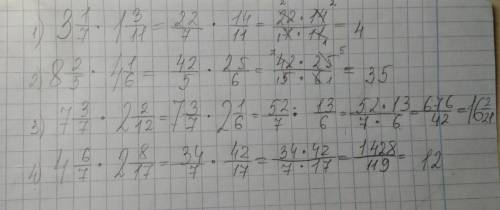 1) 3 1/7 · 1 3/11 = 22/7 · 14/11 = 22 · 14/7 · 11 = 4
2) 8 2/5 · 4 1/6 = 42/5 · 25/6 = 42 · 25/5 · 6 = 35
3) 7 3/7 · 2 2/12 = 7 3/7 · 2 1/6 = 52/7 · 13/6 = 52 · 13/7 · 6 = 676/42 = 16 2/21
4) 4 6/7 · 2 8/17 = 34/7 · 42/17 = 34 · 42/7 · 17 = 1428/119 = 12